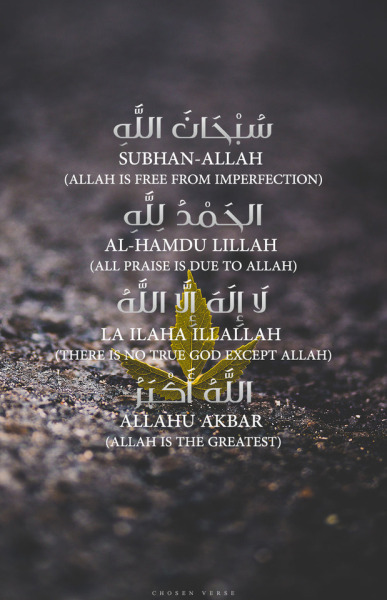 سُبْحَانَ اللَّهِ
SUBHAN-ALLAH
(ALLAH IS FREE FROM IMPERFECTION)
الحَمْدُ لِلَّهِ
AL-HAMDU LILLAH
(ALL PRAISE IS DUE TO ALLAH)
لَا إِلَهَ إِلَّا اللَّهُ
LA ILAHA ILLALLAH
(THERE IS NO TRUE GOD EXCEPT ALLAH)
اللَّهُ أَكْبَرُ
ALLAHU AKBAR
(ALLAH IS THE GREATEST)
CHOSEN VERSE